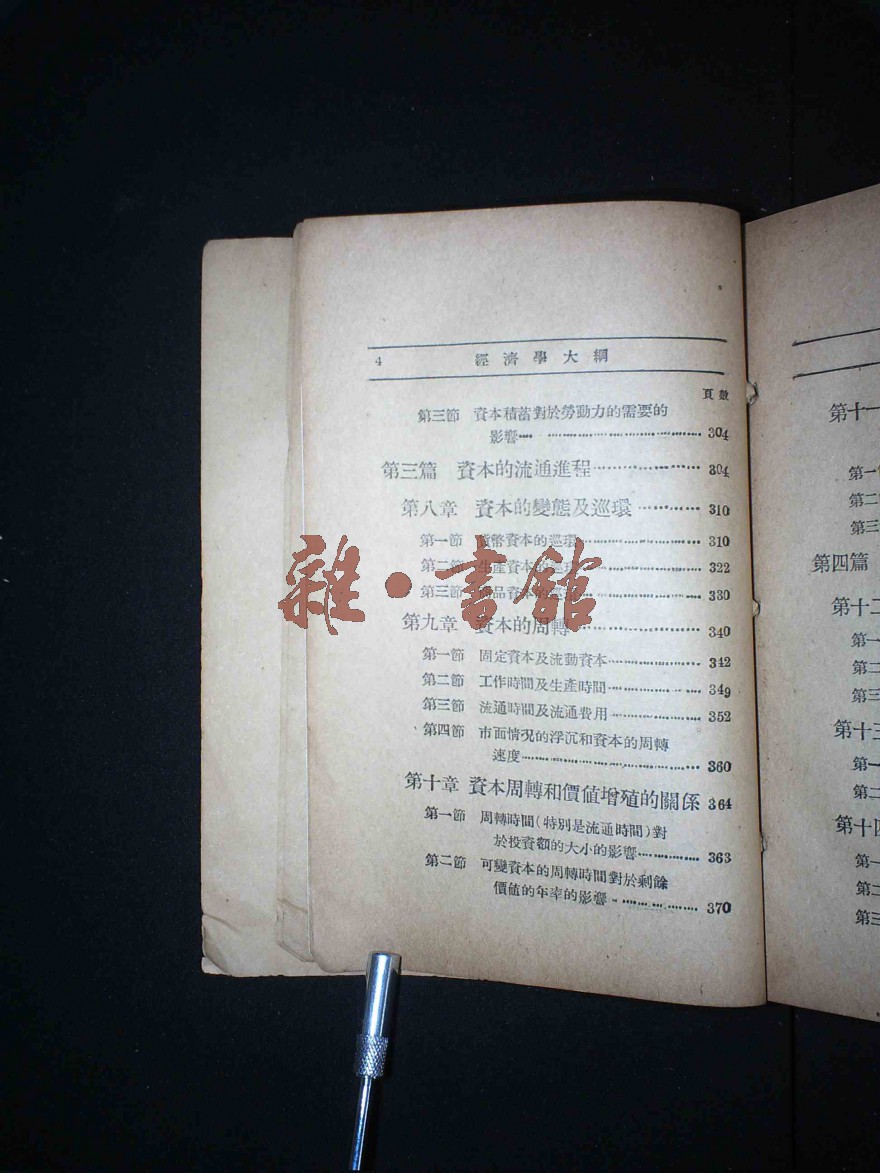 4 經濟學大綱
頁數
第三節 資本積蓄對於勞動力的需要的
影響…… 304
第三篇 資本的流通進程…… 304
第八章 資本的變態及巡環…… 310
第一節 貨幣資本的巡環…… 310
第二節 生產資本的巡環…… 322
第三節 商品資本的巡環…… 330
第九章 資本的周轉…… 340
第一節 固定資本及流動資本…… 342
第二節 工作時間及生產時間…… 349
第三節 流通時間及流通費用…… 352
第四節 市面情況的浮沉和資本的周轉
速度…… 360
第十章 資本周轉和價值增殖的關係 364
第一節 周轉時間(特別是流通時間)對
於投資額的大小的影響…… 363
第二節 可變資本的周轉時間對於剩餘
價值的年率的影響…… 370
雜·書館
第十一
第一
第二
第三
第四篇
第十二
第一
第二
第三
第十三
第一
第二
第十四
第一
第二
第三